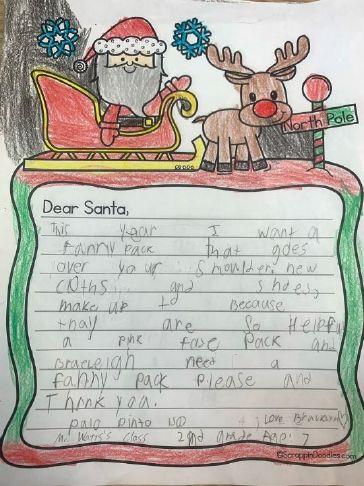 North Pole
Dear Santa,
This year I want a
fanny pack that goes
over your shoulder. new
cloths and shoes,
make up to because
thay are so Helpful
a pink face pack and
Braeleigh need a
fanny pack Please and
Thank you.
palo pinto ISD Love
Mr. Watts's class 2and grade Age: 7
©ScrappinDoodles.com